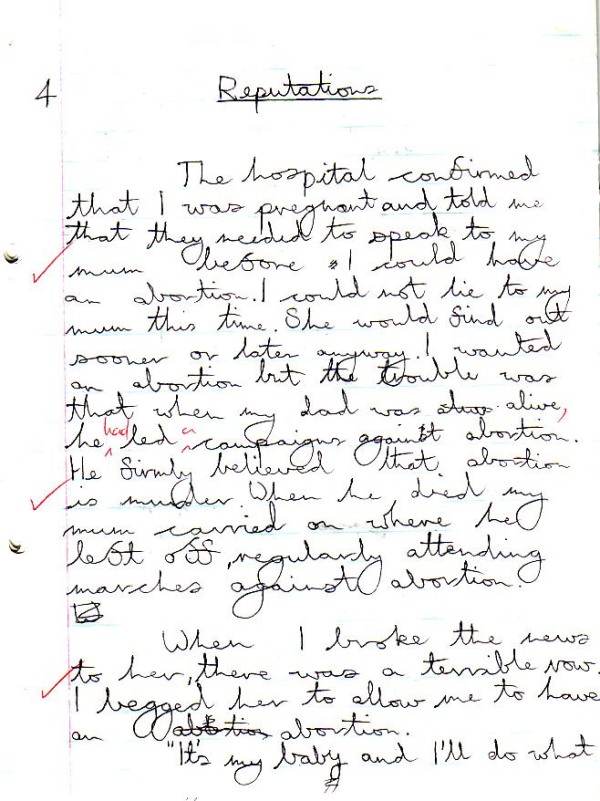 4
Reputations
The hospital confirmed
that I was pregnant and told me
that they needed to speak to my
mum before I could have
an abortion. I could not lie to my
mum this time. She would find out
sooner or later anyway. I wanted
an abortion but the trouble was
that when my dad was alive,
he had led a campaigns against abortion.
He firmly believed that abortion
is murder. When he died my
mum carried on where he
left off, regularly attending
marches against abortion.
When I broke the news
to her, there was a terrible row.
I begged her to allow me to have
an abortion abortion.
"It's my baby and I'll do what